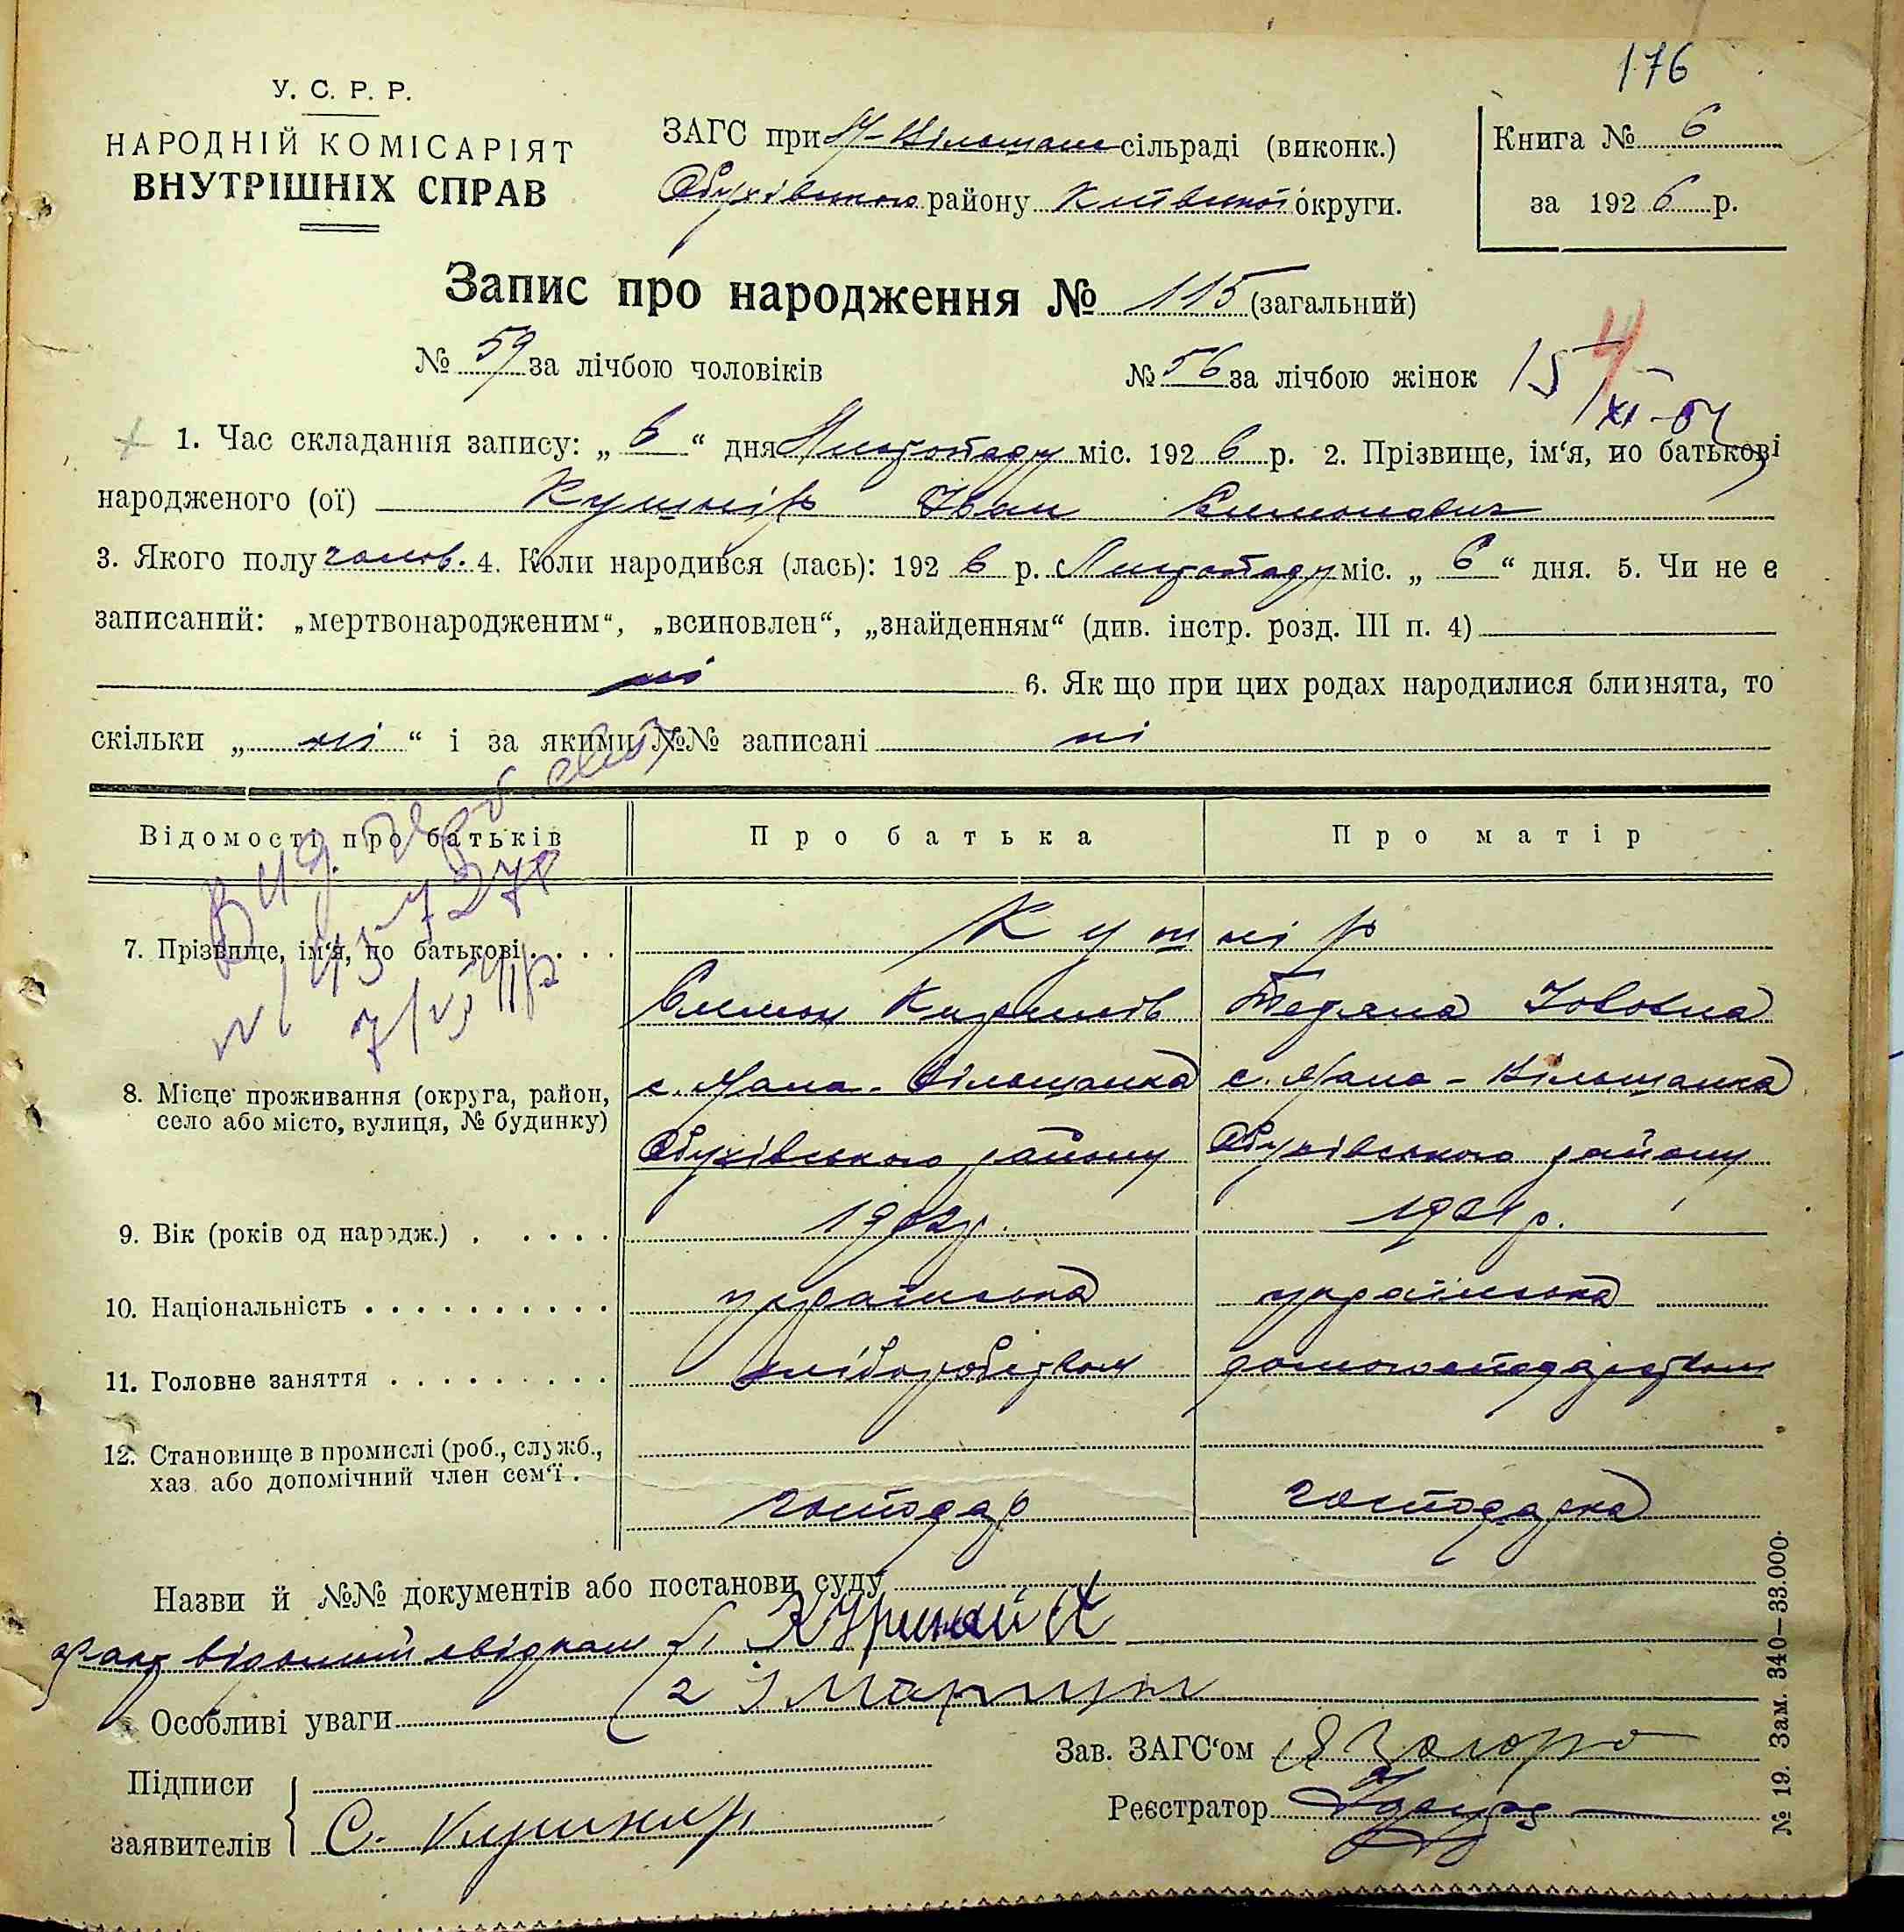 176
У. С. Р. Р.
НАРОДНІЙ КОМІСАРІЯТ
ВНУТРІШНІХ СПРАВ
ЗАГС при М-Вільшан сільраді (виконк.)
Обухівського району Київської округи.
Книга № 6
за 1926 р.
Запис про народження № 115 (загальний)
№ 59 за лічбою чоловіків № 56 за лічбою жінок
1. Час складання запису: „ 6 “ дня Листопаду міс. 1926 р. 2. Прізвище, ім‘я, по батькові
народженого (ої) Кушнір Іван Симонович
3. Якого полу чолов. 4. Коли народився (лась): 1926 р. Листопаду міс. „ 6 “ дня. 5. Чи не є
записаний: „мертвонародженим“, „всиновлен“, „знайденням“ (див. інстр. розд. III п. 4)
ні 6. Як що при цих родах народилися близнята, то
скільки „ ні “ і за якими №№ записані ні
Відомості про батьків Про батька Про матір
7. Прізвище, ім‘я, по батькові . . . . Кушнір
Симон Тетяна Іововна
8. Місце проживання (округа, район,
село або місто, вулиця, № будинку)
с. Мала-Вільшанка с. Мала-Вільшанка
Обухівського району Обухівського району
9. Вік (років од народж.) . . . . . 1902р. 1901р.
10. Національність . . . . . . . . . . . українська українська
11. Головне заняття . . . . . . . . . хліборобством домогосподарством
12. Становище в промислі (роб., служб.,
хаз. або допомічний член сем‘ї .
господар господарка
Назви й №№ документів або постанови суду
факт відомий свідкам 1.
2
Особливі уваги
Зав. ЗАГС‘ом
Підписи
заявителів С. Кушнир
Реєстратор
№ 19. Зам. 340—33.000.